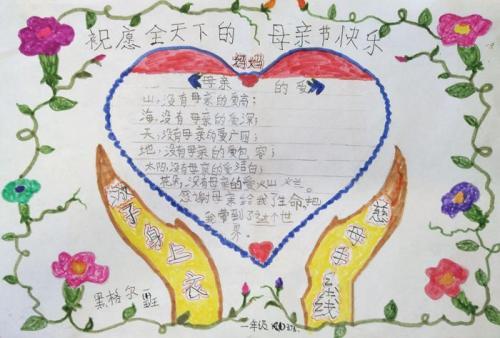 祝愿全天下的母亲节快乐
妈妈
《母亲的爱》
山，没有母亲的爱高；
海，没有母亲的爱深；
天，没有母亲的爱广阔；
地，没有母亲的爱包容；
太阳，没有母亲的爱
花朵，没有母亲的爱
感谢母亲给我了生命，把
我带到了这个世
界。
游子身上衣
慈母手中线
黑格尔 班
一年级